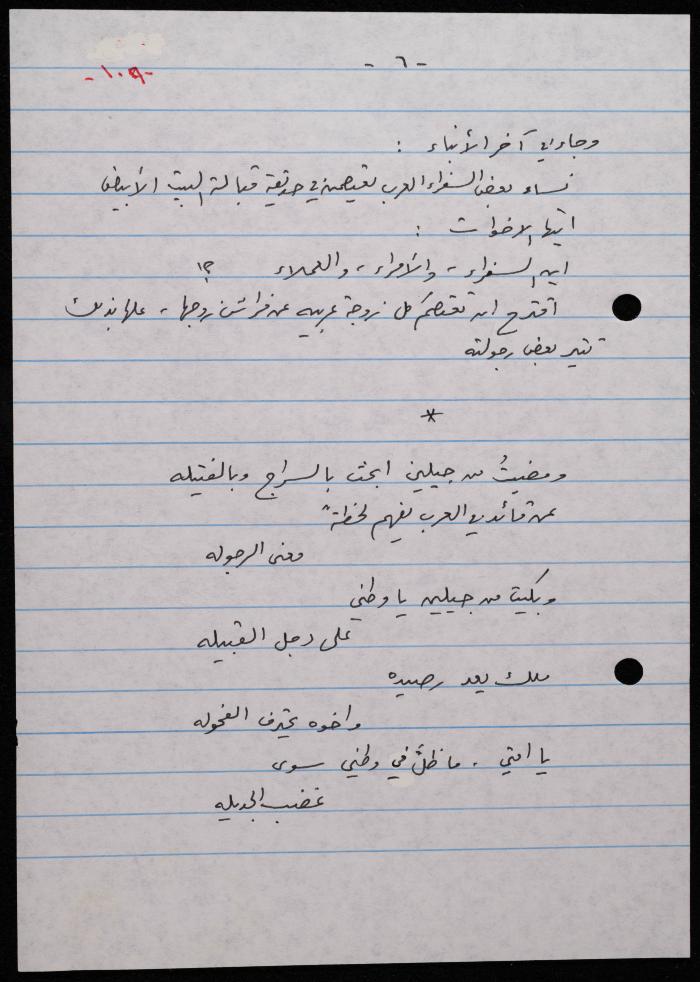 - ٦ -
- ١٠٩ -
وجاء في آخر الأنباء :
نساء بعض السفراء العرب يعتصمن في حديقة قبالة البيت الأبيض
ايتها الاخوات :
اين السفراء، والأمراء، والعملاء ؟!
اقترح ان تعتصم كل زوجة عربيه عن فراش زوجها، علها بذلك
تثير بعض رجولته
*
ومضيتُ من جيلين ابحث بالسراج وبالفتيله
عن قائد في العرب يفهم لحظةً
معنى الرجوله
وبكيت من جيلين يا وطني
على رجل القبيله
ملك يعد رصيده
واخوه يحترف الفحوله
يا امتي . ما ظلَّ في وطني سوى
غضب الجديله